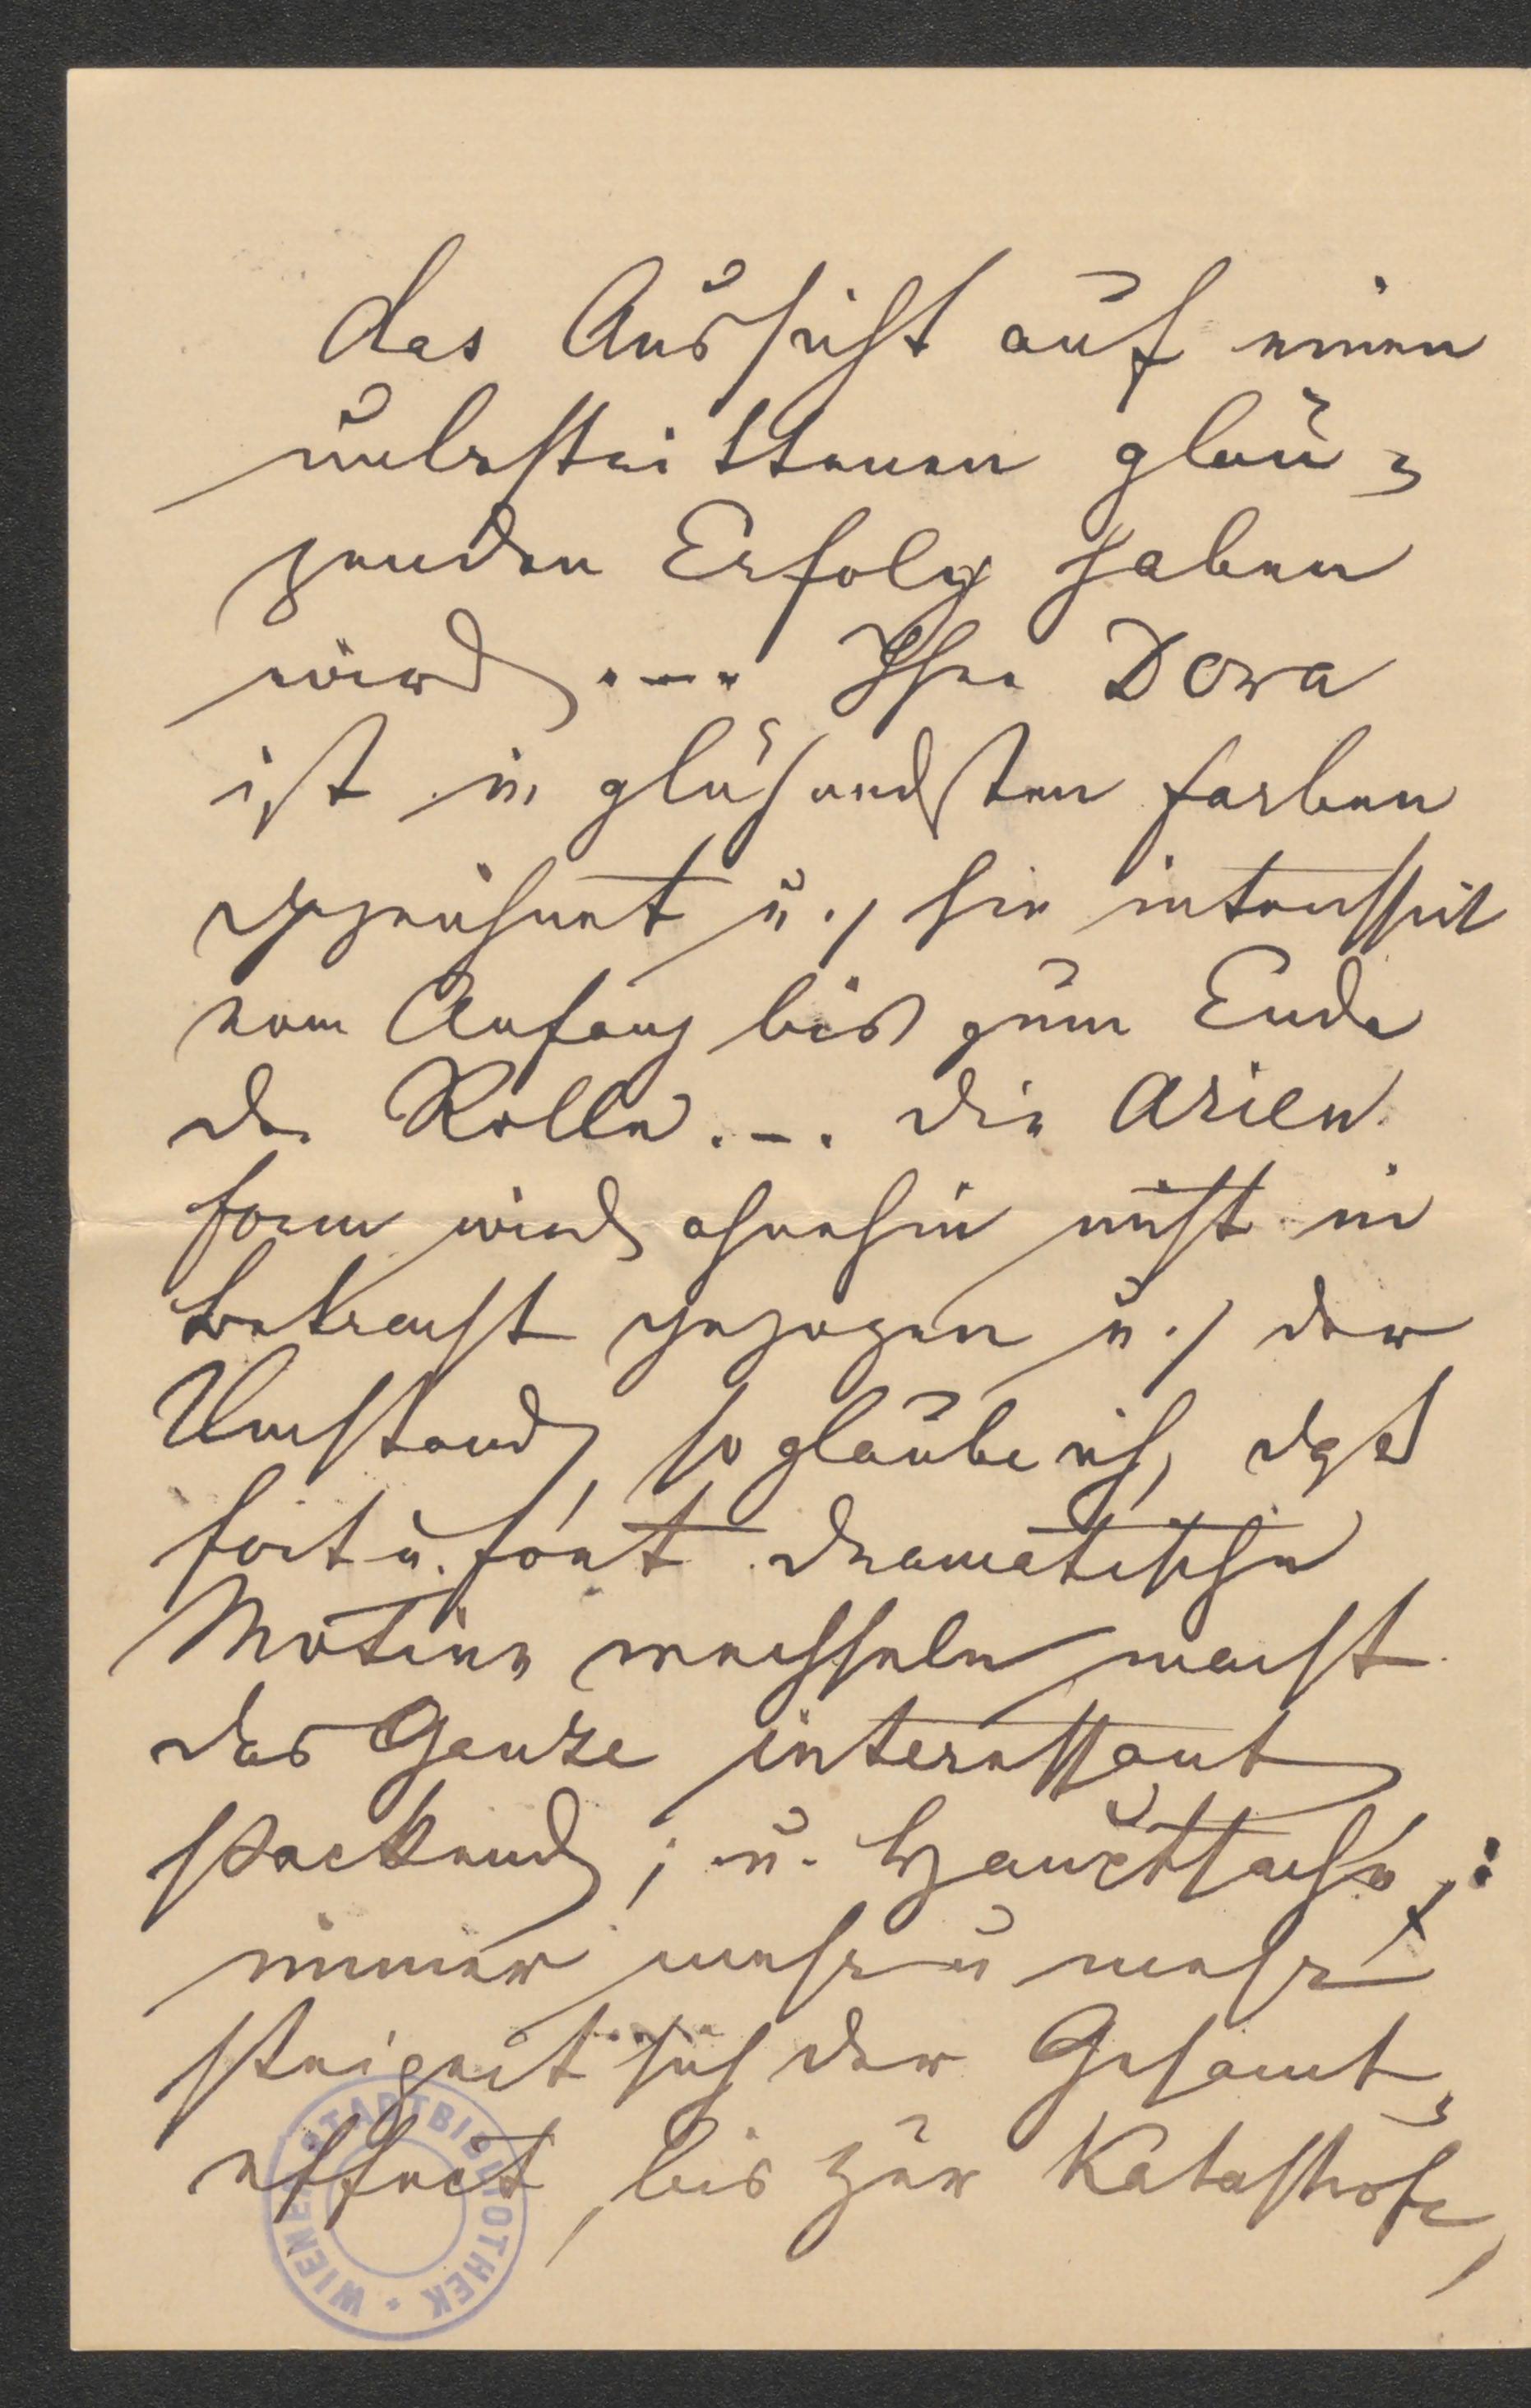 das Aussicht auf einen
unbestrittenen glän-
zenden Erfolg haben
wird. –. Ihre Dora
ist in glühendsten Farben
gezeichnet u., sie interessirt
vom Anfang bis zum Ende
der Rolle. –. Die Arien
form wird ohnehin nicht in
betracht gezogen u., der
Umstand, so glaube ich, daß
fort u. fort dramatische
Motive wechseln macht
das Ganze interessant
packend; u. Hauptsache,:
immer mehr u mehr
steigert sich der Gesamt-
effect, bis zur Katastrofe,
WIENER STADTBIBLIOTHEK